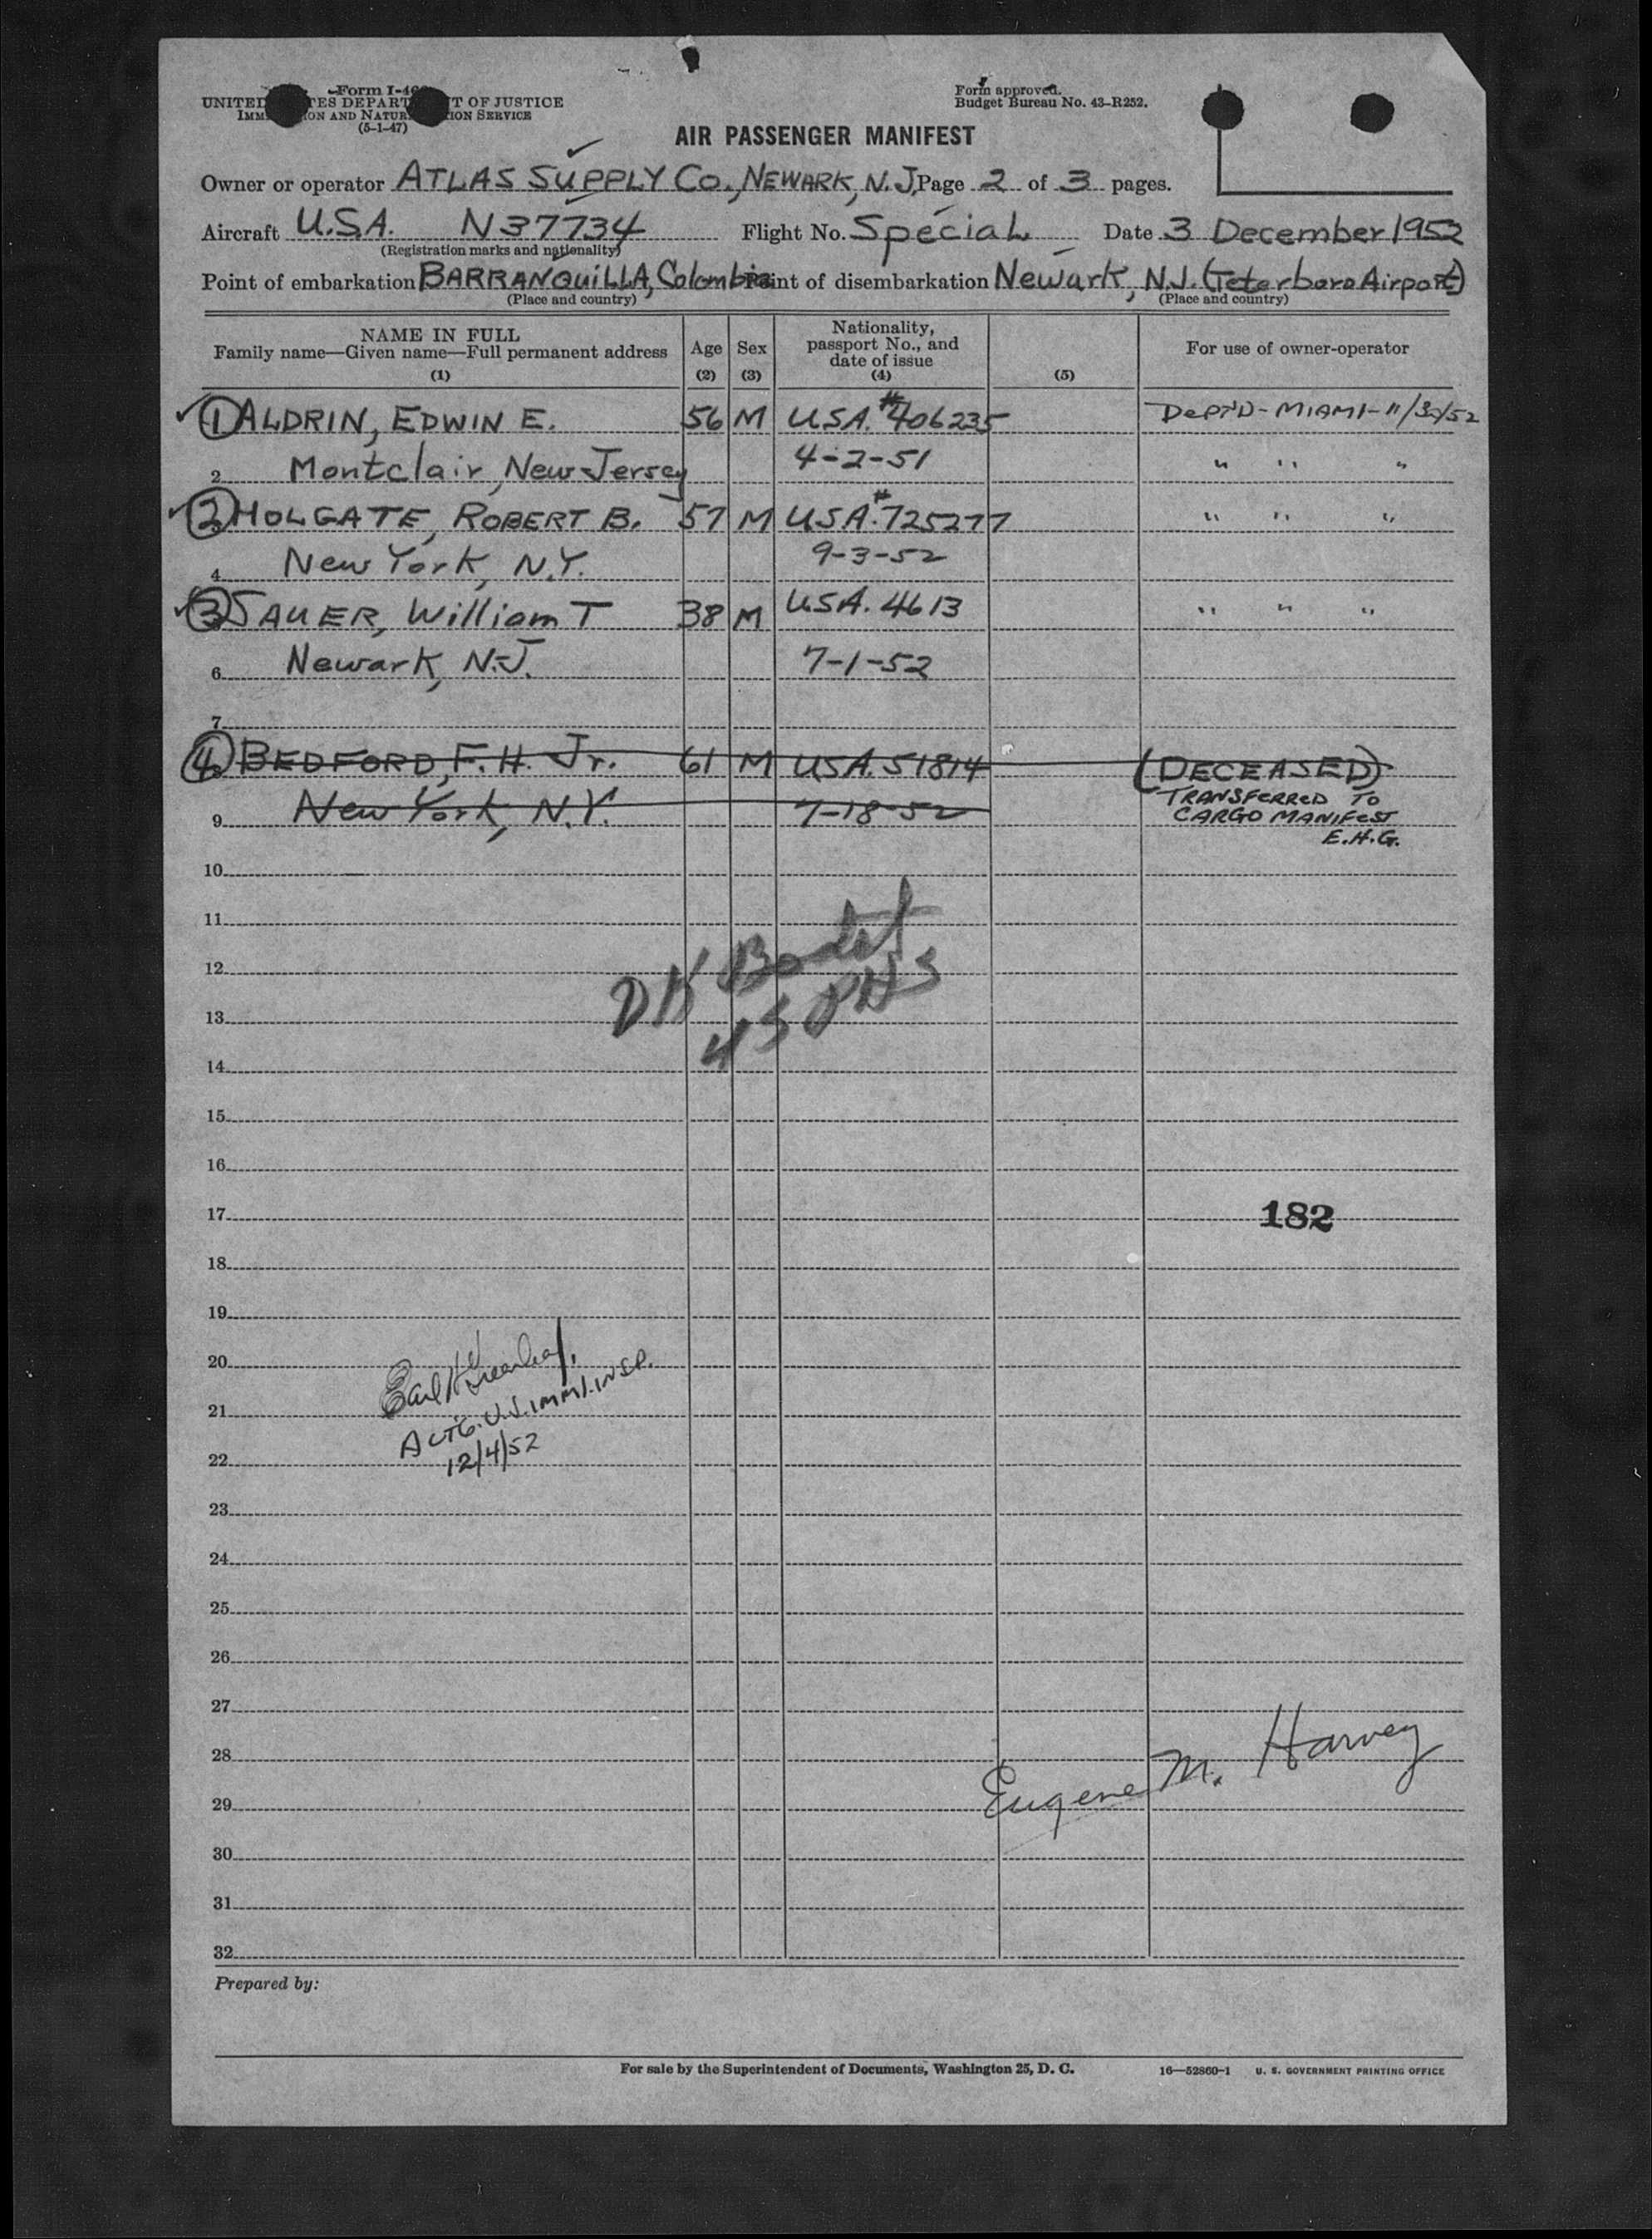 Form I-46
UNITED TES DEPART T OF JUSTICE
IMM ON AND NATUR ION SERVICE
(5-1-47)
Form approved.
Budget Bureau No. 43-R252.
AIR PASSENGER MANIFEST
Owner or operator ATLAS SUPPLY Co., NEWARK, N.J. Page 2 of 3 pages.
Aircraft U.S.A. N37734 Flight No. Special Date 3 December 1952
(Registration marks and nationality)
Point of embarkation BARRANQUILLA, Colombia Point of disembarkation Newark, N.J. (Teterboro Airport)
(Place and country) (Place and country)
NAME IN FULL
Family name—Given name—Full permanent address
(1)
Age
(2)
Sex
(3)
Nationality,
passport No., and
date of issue
(4)
(5)
For use of owner-operator
1 ALDRIN, EDWIN E. 56 M USA. #406235 DEPT'D - MIAMI - 11/30/52
2 Montclair, New Jersey 4-2-51 " " "
2 HOLGATE, ROBERT B. 57 M USA. #725277 " " "
4 New York, N.Y. 9-3-52
3 SAUER, William T 38 M USA. 4613 " " "
6 Newark, N.J. 7-1-52
7
4 BEDFORD, F.H. Jr. 61 M USA. 51814 (DECEASED)
9 New York, N.Y. 7-18-52 TRANSFERRED TO
CARGO MANIFEST
E.H.G.
10
11
12
13
45 PHS
14
15
16
17 182
18
19
20 Earl H
21 ACTG. U.S. IMMI. INSP.
22 12/4/52
23
24
25
26
27
28 Eugene M. Harvey
29
30
31
32
Prepared by:
For sale by the Superintendent of Documents, Washington 25, D. C. 16—52860-1 U. S. GOVERNMENT PRINTING OFFICE